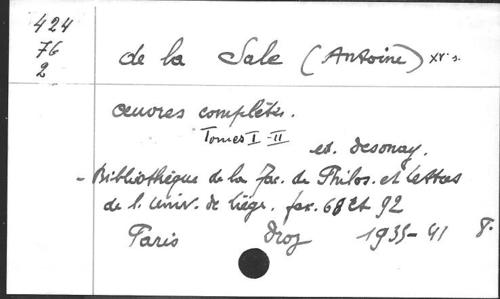 424
76
2
de la Sale (Antoine) XVs.
Œuvres complètes.
Tomes I-II
ed. Desonay.
- Bibliothèque de la Fac. de Philos. et Lettres
de l'Univ. de Liège. fax. 68 et 92
Paris Droz 1935-41 8°